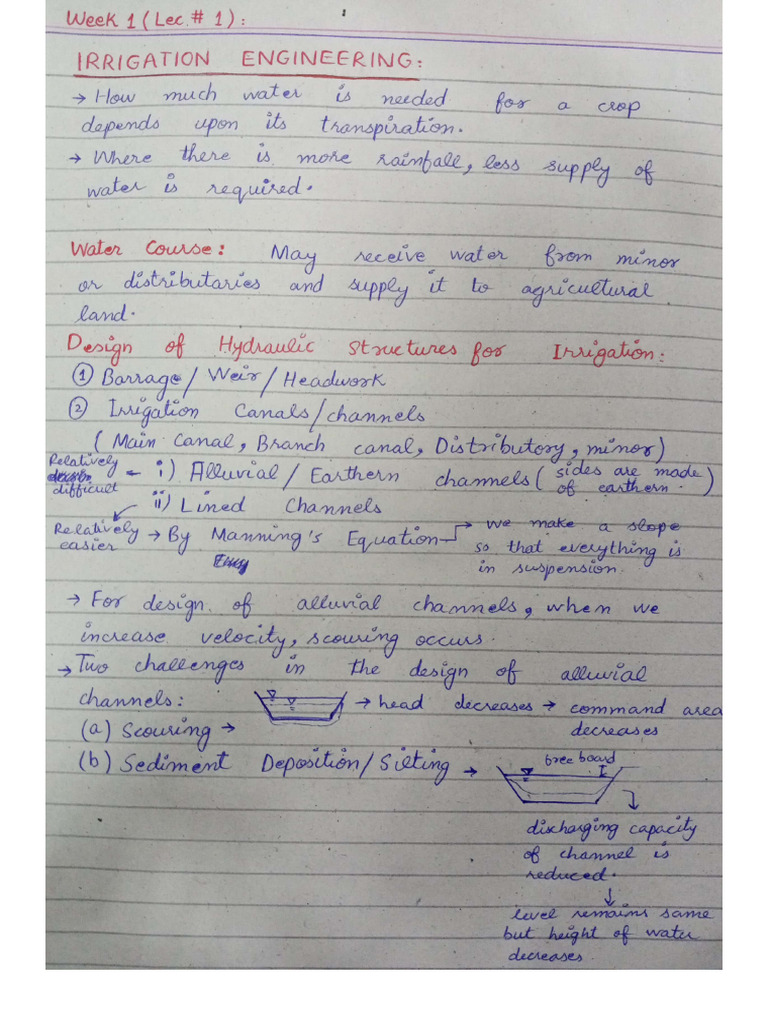 Week 1 (Lec. # 1):
IRRIGATION ENGINEERING:
→ How much water is needed for a crop
depends upon its transpiration.
→ Where there is more rainfall, less supply of
water is required.
Water Course: May receive water from minor
or distributaries and supply it to agricultural
land.
Design of Hydraulic Structures for Irrigation:
① Barrage/Weir/Headwork
② Irrigation Canals/channels
(Main Canal, Branch canal, Distributory, minor)
Relatively difficult ← i) Alluvial/Earthern channels (sides are made of earthern.)
ii) Lined Channels
Relatively easier → By Manning's Equation → we make a slope
so that everything is
in suspension.
→ For design of alluvial channels, when we
increase velocity, scouring occurs.
→ Two challenges in the design of alluvial
channels:
(a) Scouring → → head decreases → command area
decreases
(b) Sediment Deposition/Silting →
free board
discharging capacity
of channel is
reduced.
↓
level remains same
but height of water
decreases.